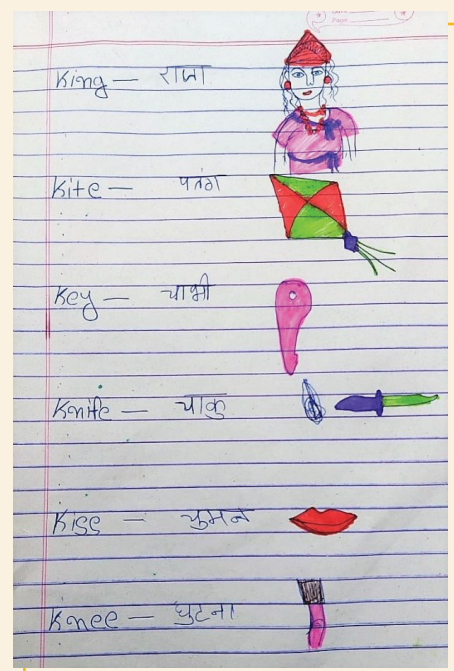 Page
King — राजा
Kite — पतंग
Key — चाभी
Knife — चाकु
Kiss — चुमन
Knee — घुटना